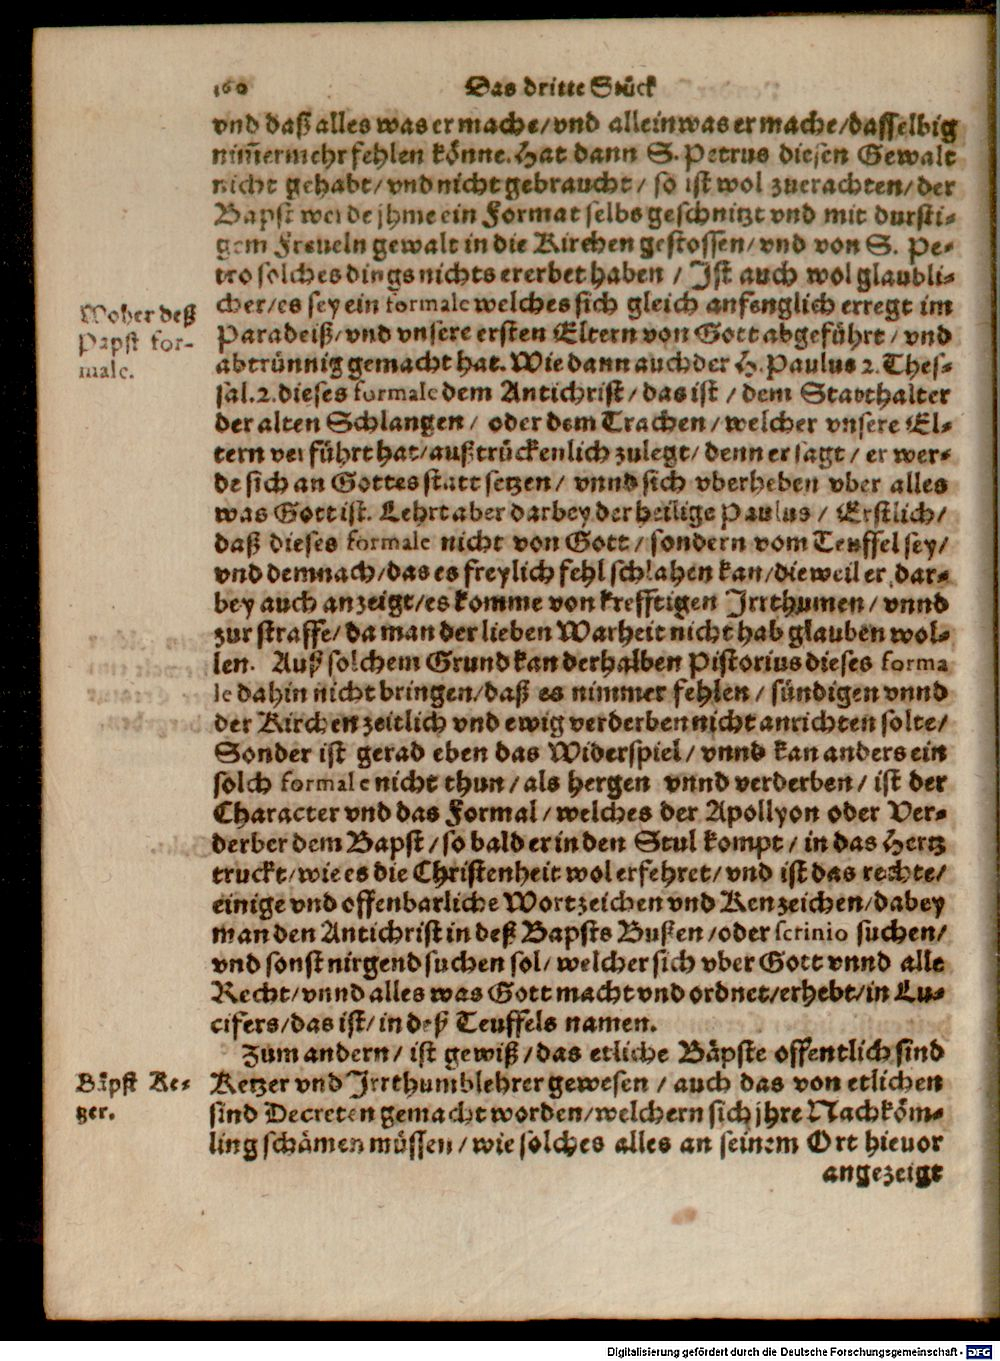 160 Das dritte Stück
vnd daß alles was er mache/vnd allein was er mache/dasselbig
nim̅ermehr fehlen könne. Hat dann S. Petrus diesen Gewalt
nicht gehabt/vnd nicht gebraucht/ so ist wol zuerachten/der
Bapst werde jhme ein Format selbs geschnitzt vnd mit dursti-
gem Freueln gewalt in die Kirchen gestossen/vnd von S. Pe-
tro solches dings nichts ererbet haben / Ist auch wol glaubli-
cher/es sey ein formale welches sich gleich anfenglich erregt im
Paradeiß/vnd vnsere ersten Eltern von Gott abgeführt/ vnd
abtrünnig gemacht hat. Wie dann auch der H. Paulus 2. Thes-
sal. 2. dieses formale dem Antichrist/das ist / dem Statthalter
der alten Schlangen/ oder dem Trachen/welcher vnsere El-
tern verführt hat/außtrückenlich zulegt/ denn er sagt / er wer-
de sich an Gottes statt setzen/ vnnd sich vberheben vber alles
was Gott ist. Lehrt aber darbey der heilige Paulus / Erstlich/
daß dieses formale nicht von Gott/ sondern vom Teuffel sey/
vnd demnach/das es freylich fehl schlahen kan/dieweil er dar-
bey auch anzeigt/es komme von krefftigen Irrthumen/ vnnd
zur straffe/ da man der lieben Warheit nicht hab glauben wol-
len. Auß solchem Grund kan derhalben Pistorius dieses forma
le dahin nicht bringen/daß es nimmer fehlen / sündigen vnnd
der Kirchen zeitlich vnd ewig verderben nicht anrichten solte/
Sonder ist gerad eben das Widerspiel/ vnnd kan anders ein
solch formale nicht thun/als hergen vnnd verderben/ ist der
Character vnd das Formal/ welches der Apollyon oder Ver-
derber dem Bapst/so bald er in den Stul kompt/ in das Hertz
truckt/wie es die Christenheit wol erfehret/vnd ist das rechte/
einige vnd offenbarliche Wortzeichen vnd Kenzeichen/dabey
man den Antichrist in deß Bapsts Bussen/oder scrinio suchen/
vnd sonst nirgend suchen sol/ welcher sich vber Gott vnnd alle
Recht/vnnd alles was Gott macht vnd ordnet/erhebt/in Lu-
cifers/das ist/in deß Teuffels namen.
Zum andern/ ist gewiß/das etliche Bäpste offentlich sind
Ketzer vnd Irrthumblehrer gewesen / auch das von etlichen
sind Decreten gemacht worden/welchern sich jhre Nachköm-
ling schämen müssen/wie solches alles an seinem Ort hieuor
angezeigt
Woher deß
Papst for-
male.
Bäpst Ke-
tzer.
Digitalisierung gefördert durch die Deutsche Forschungsgemeinschaft - DFG